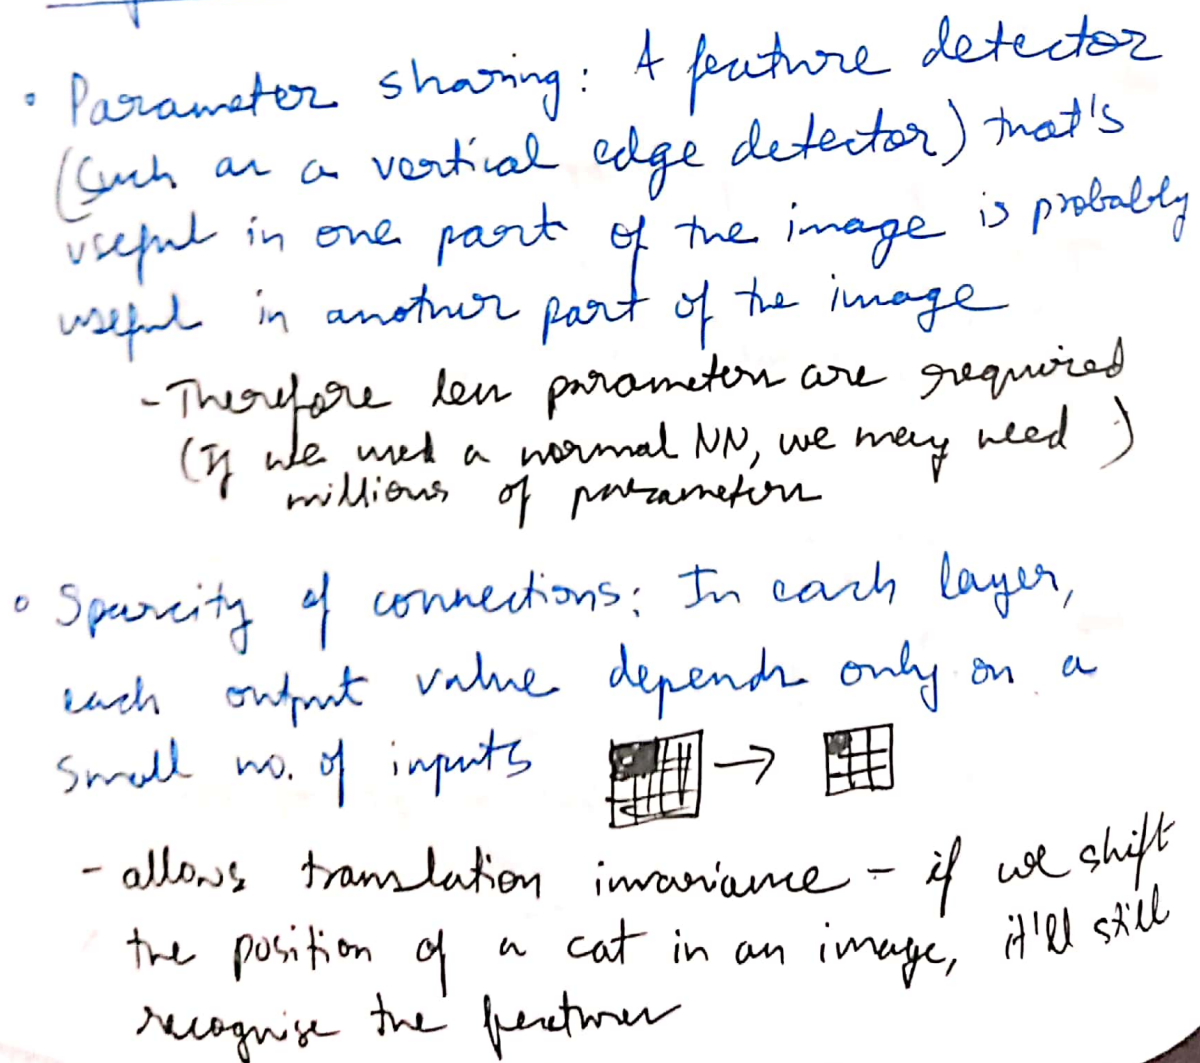 • Parameter sharing: A feature detector
(such as a vertical edge detector) that's
useful in one part of the image is probably
useful in another part of the image
- Therefore less parameters are required
(If we used a normal NN, we may need)
millions of parameters
• Sparcity of connections: In each layer,
each output value depends only on a
small no. of inputs →
- allows translation invariance - if we shift
the position of a cat in an image, it'll still
recognise the features